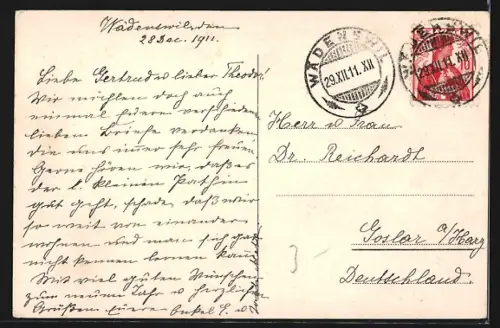 Wädenswil, den
28 Dec. 1911.
Liebe Gertrud u lieber Theodor!
Wir möchten doch auch
einmal Euere verschiedenen
lieben Briefe verdanken
die uns immer sehr freuen.
Gerne hören wir, daß es
der l. kleinen Pathin
gut geht, schade, daß wir
so weit von einander
wohnen und man sich gar
nicht kennen lernen kann
Mit viel guten Wünschen
zum neuen Jahr u herzlichen
Grüßen Euere
WÄDENSWIL
29.XII.11.XII
WÄDENSWIL
29.XII.11.XII
10
Herr u Frau
Dr. Reichardt
Goslar a/Harz
Deutschland.
3-